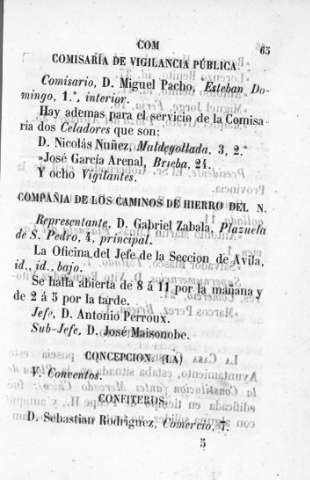 COM
65
COMISARÍA DE VIGILANCIA PÚBLICA
Comisario, D. Miguel Pacho, Esteban Do-
mingo, 1.°, interior.
Hay ademas para el servicio de la Comisa-
ria dos Celadores que son:
D. Nicolás Nuñez, Maldegollada, 3, 2.°
»José García Arenal, Brieba, 24.
Y ocho Vigilantes.
COMPAÑIA DE LOS CAMINOS DE HIERRO DEL N.
Representante, D. Gabriel Zabala, Plazuela
de S. Pedro, 4, principal.
La Oficina del Jefe de la Seccion de Avila,
id., id., bajo.
Se halla abierta de 8 á 11 por la mañana y
de 2 á 5 por la tarde.
Jefe, D. Antonio Perroux.
Sub-Jefe, D. José Maisonobe.
CONCEPCION. (LA)
V. Conventos.
CONFITEROS.
D. Sebastian Rodriguez, Comercio, 7.
5